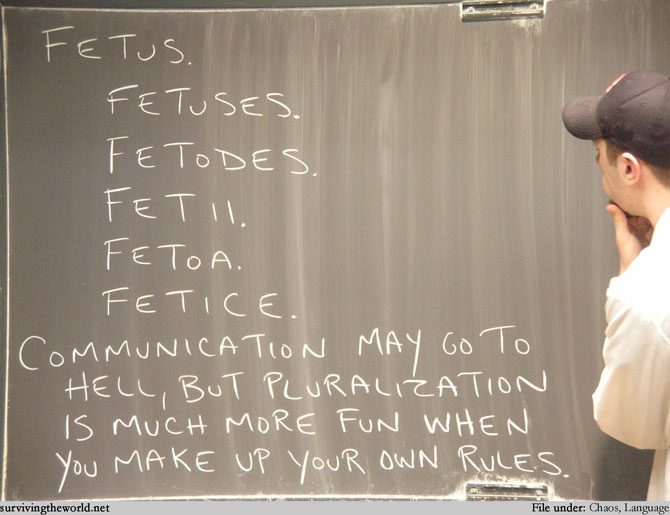 FETUS.
FETUSES.
FETODES.
FETII.
FETOA.
FETICE.
COMMUNICATION MAY GO TO
HELL, BUT PLURALIZATION
IS MUCH MORE FUN WHEN
YOU MAKE UP YOUR OWN RULES.
survivingtheworld.net
File under: Chaos, Language